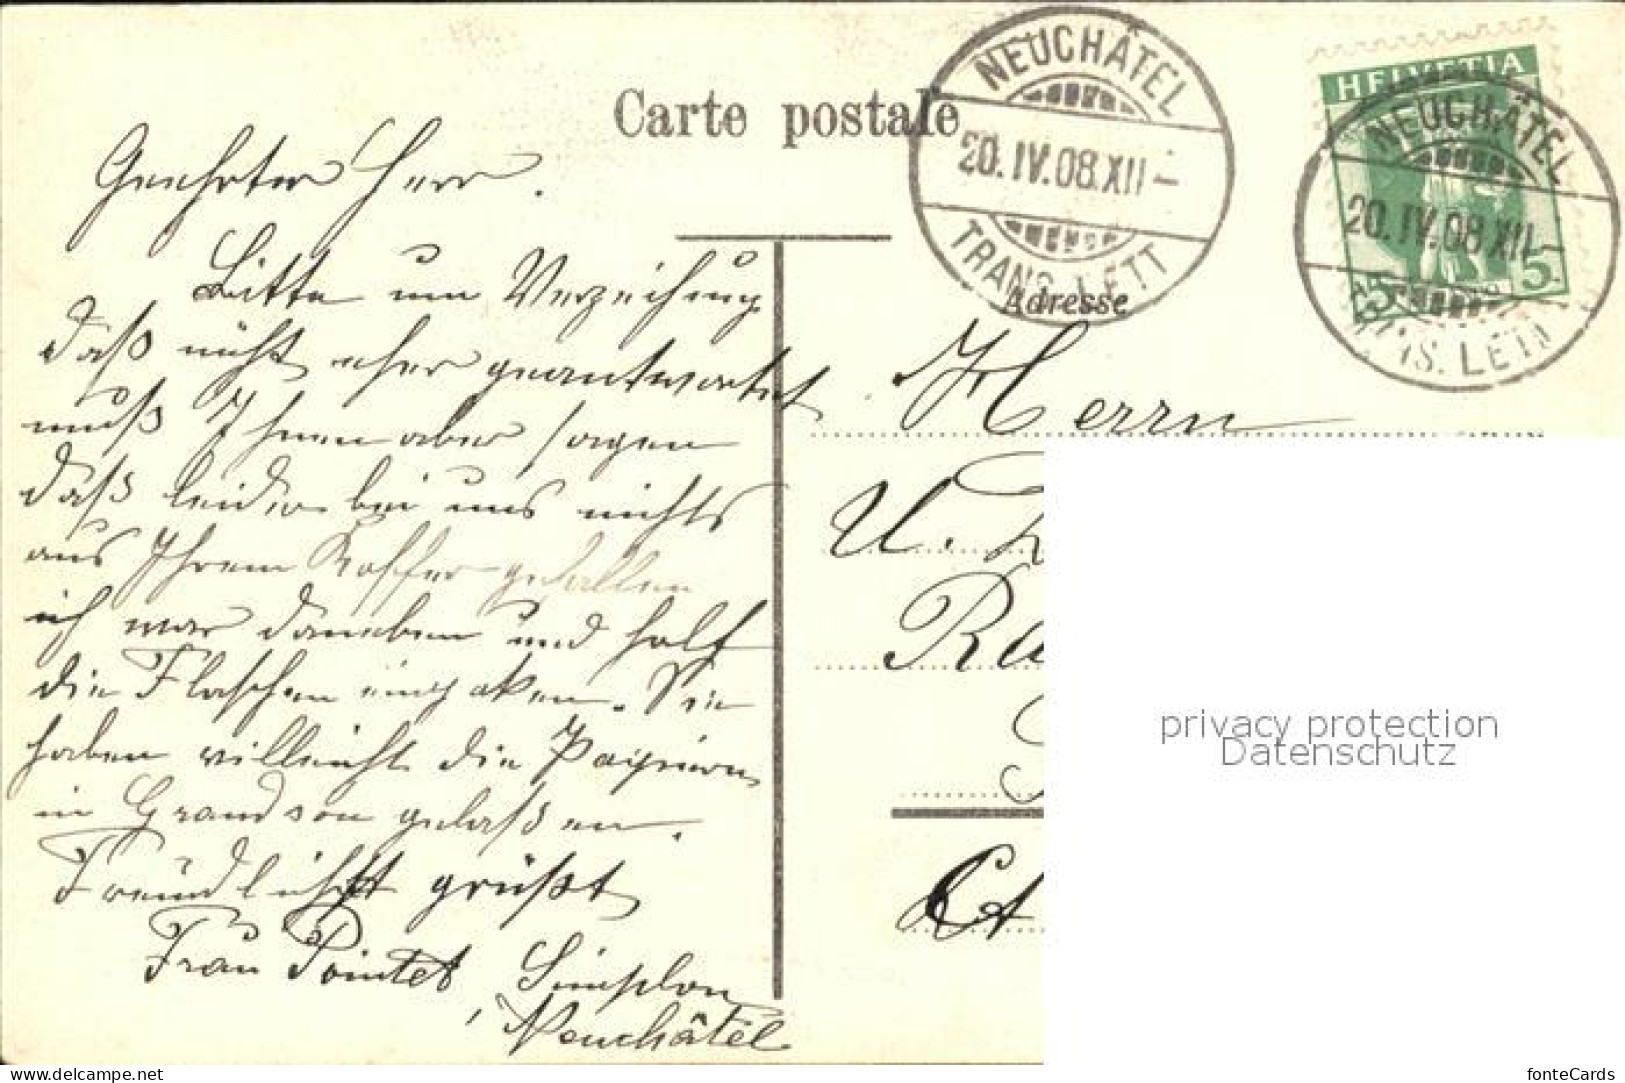 Carte postale
NEUCHÂTEL
20.IV.08.XII–
TRANS.LETT
HELVETIA
NEUCHÂTEL
20.IV.08.XII–
5
5
Adresse
Geehrter Herr.
Bitte um Verzeihung
daß nicht eher geantwortet
muß Ihnen aber sagen
daß leider bei uns nichts
aus Ihrem Koffer gefallen
ich war daneben und half
die Flaschen einpaken. Sie
haben villeicht die Papiere
in Grandson gelaßen.
Freundlichst grüßt
Frau Pointet, Simplon
Neuchâtel
Herrn
U.
privacy protection
Datenschutz
www.delcampe.net
fonteCards